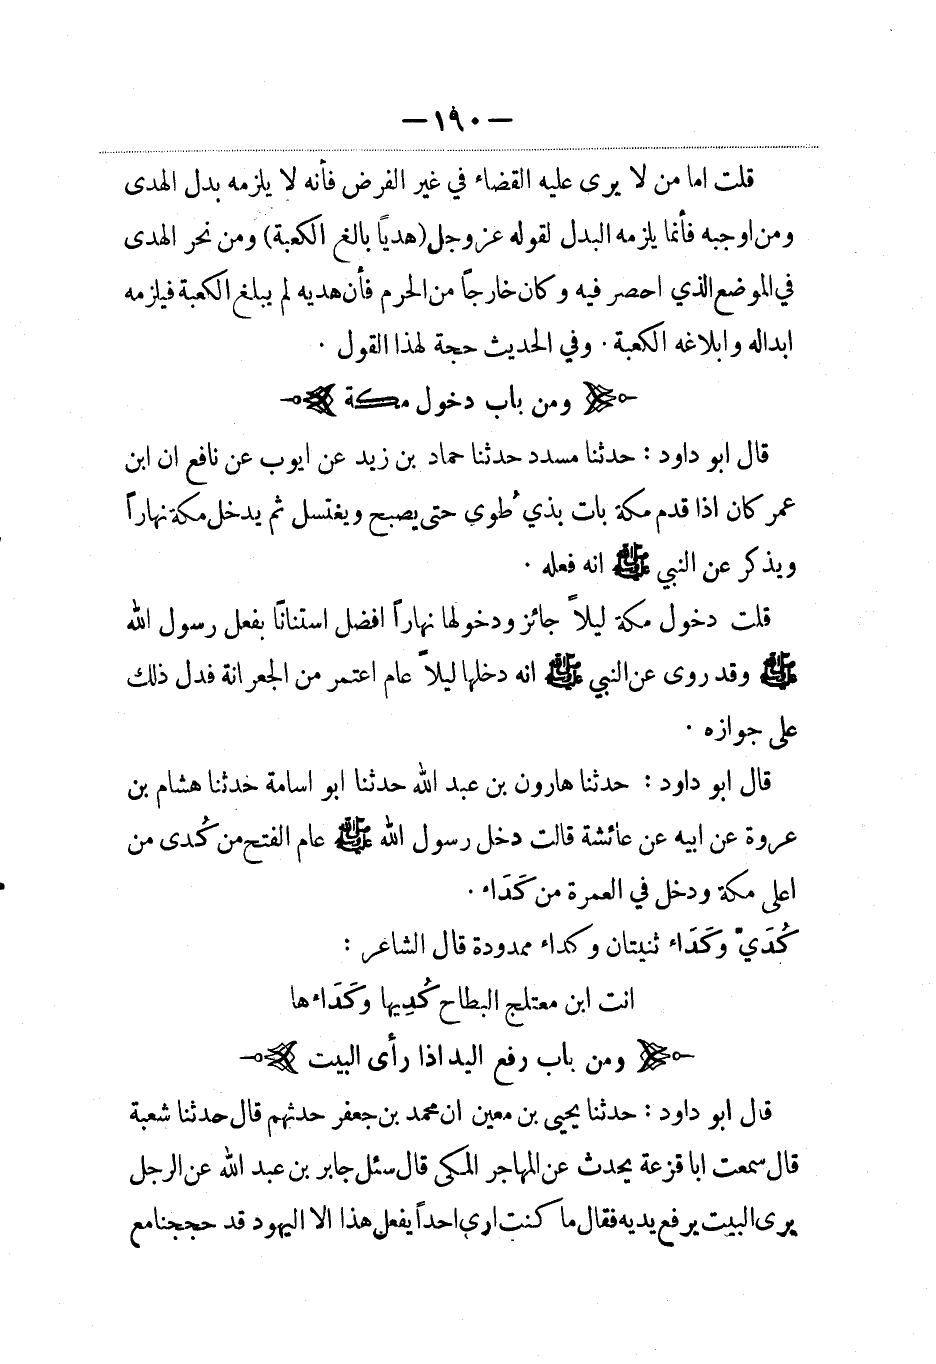 — ١٩٠ —
قلت اما من لا يرى عليه القضاء في غير الفرض فأنه لا يلزمه بدل الهدى
ومن اوجبه فأنما يلزمه البدل لقوله عز وجل (هدياً بالغ الكعبة) ومن نحر الهدى
في الموضع الذي احصر فيه وكان خارجاً من الحرم فأن هديه لم يبلغ الكعبة فيلزمه
ابداله وابلاغه الكعبة . وفي الحديث حجة لهذا القول .
ومن باب دخول مكة
قال ابو داود : حدثنا مسدد حدثنا حماد بن زيد عن ايوب عن نافع ان ابن
عمر كان اذا قدم مكة بات بذي طُوي حتى يصبح ويغتسل ثم يدخل مكة نهاراً
ويذكر عن النبي ﷺ انه فعله .
قلت دخول مكة ليلاً جائز ودخولها نهاراً افضل استناناً بفعل رسول الله
ﷺ وقد روى عن النبي ﷺ انه دخلها ليلاً عام اعتمر من الجعرانة فدل ذلك
على جوازه .
قال ابو داود : حدثنا هارون بن عبد الله حدثنا ابو اسامة حدثنا هشام بن
عروة عن ابيه عن عائشة قالت دخل رسول الله ﷺ عام الفتح من كُدى من
اعلى مكة ودخل في العمرة من كَدَاء .
كُدَيّ وكَدَاء ثنيتان وكداء ممدودة قال الشاعر :
انت ابن معتلج البطاح كُدِيها وكَدَاءها
ومن باب رفع اليد اذا رأى البيت
قال ابو داود : حدثنا يحيى بن معين ان محمد بن جعفر حدثهم قال حدثنا شعبة
قال سمعت ابا قزعة يحدث عن المهاجر المكي قال سئل جابر بن عبد الله عن الرجل
يرى البيت يرفع يديه فقال ما كنت ارى احداً يفعل هذا الا اليهود قد حججنا مع